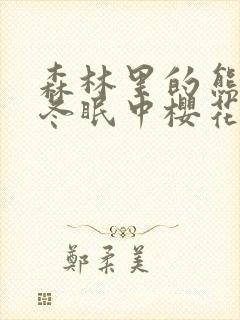 森林里的熊
冬眠中樱花
鄭柔美